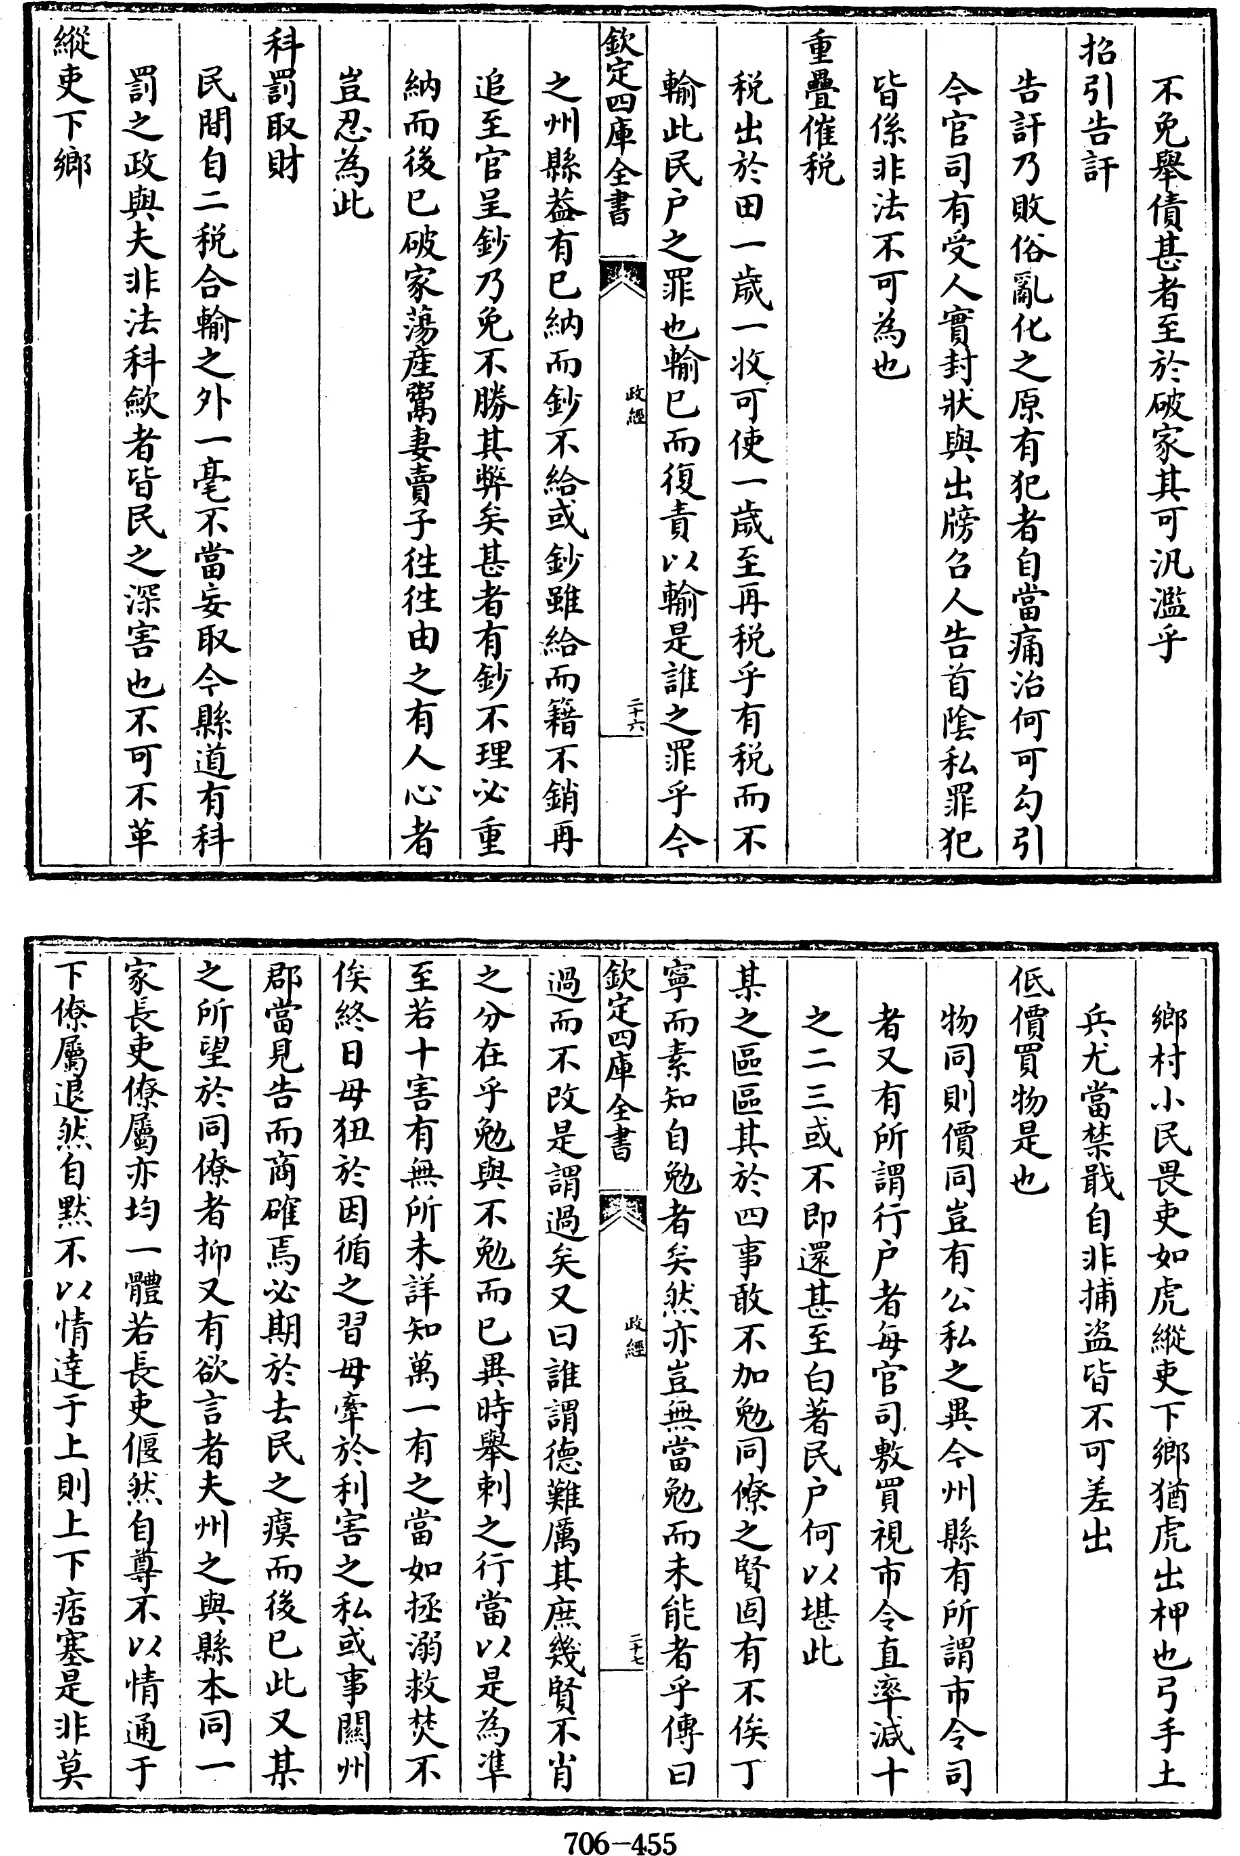 不免舉債甚者至於破家其可汎濫乎
招引告訐
告訐乃敗俗亂化之原有犯者自當痛治何可勾引
今官司有受人實封狀與出牓召人告首隂私罪犯
皆係非法不可為也
重疊催税
税出於田一歳一收可使一歳至再税乎有税而不
輸此民户之罪也輸已而復責以輸是誰之罪乎今
欽定四庫全書
政經
二十六
之州縣葢有已納而鈔不給或鈔雖給而籍不銷再
追至官呈鈔乃免不勝其弊矣甚者有鈔不理必重
納而後已破家蕩産鬻妻賣子徃徃由之有人心者
豈忍為此
科罰取財
民間自二税合輸之外一毫不當妄取今縣道有科
罰之政與夫非法科歛者皆民之深害也不可不革
縱吏下鄉
鄉村小民畏吏如虎縱吏下鄉猶虎出柙也弓手土
兵尤當禁戢自非捕盗皆不可差出
低價買物是也
物同則價同豈有公私之異今州縣有所謂市令司
者又有所謂行户者每官司敷買視市令直率減十
之二三或不即還甚至白著民户何以堪此
某之區區其於四事敢不加勉同僚之賢固有不俟丁
寧而素知自勉者矣然亦豈無當勉而未能者乎傳曰
欽定四庫全書
政經
二十七
過而不改是謂過矣又曰誰謂德難厲其庶幾賢不肖
之分在乎勉與不勉而已異時舉刺之行當以是為凖
至若十害有無所未詳知萬一有之當如拯溺救焚不
俟終日毋狃於因循之習毋牽於利害之私或事關州
郡當見告而商確焉必期於去民之瘼而後已此又某
之所望於同僚者抑又有欲言者夫州之與縣本同一
家長吏僚屬亦均一體若長吏偃然自尊不以情通于
下僚屬退然自黙不以情達于上則上下痞塞是非莫
706-455